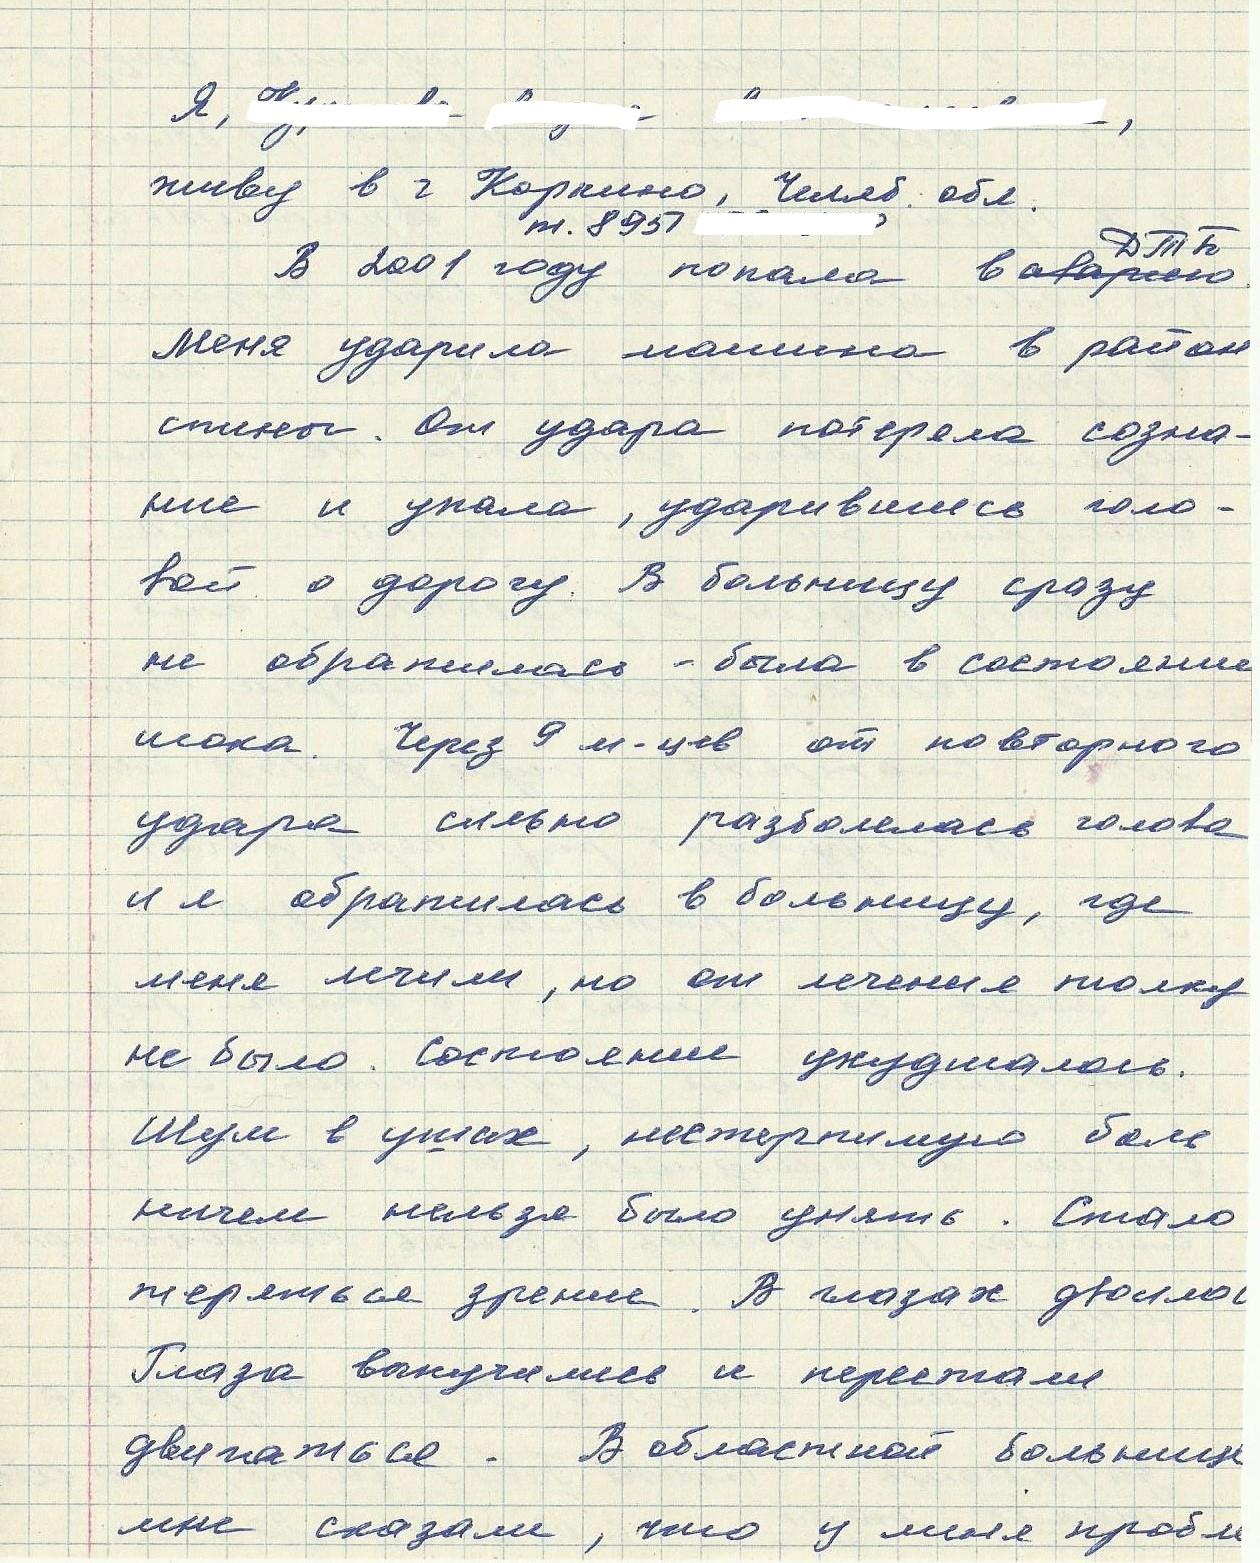 Я,
живу в г Коркино, Челяб. обл.
т. 8951
ДТП
В 2001 году попала в аварию.
Меня ударила машина в район
спины. От удара потеряла созна-
ние и упала, ударившись голо-
вой о дорогу. В больницу сразу
не обратилась - была в состоянии
шока. Через 9 м-цев от повторного
удара сильно разболелась голова
и я обратилась в больницу, где
меня лечили, но от лечения толку
не было. Состояние ухудшалось.
Шум в ушах, нестерпимую боль
ничем нельзя было унять. Стало
теряться зрение. В глазах двоилос
Глаза выпучились и перестали
двигаться. В областной больнице
мне сказали, что у меня пробле